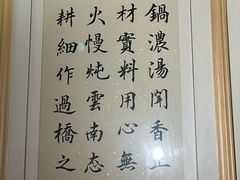 鍋濃湯聞香
材實料用心無
火慢炖雲南态
耕細作過橋之